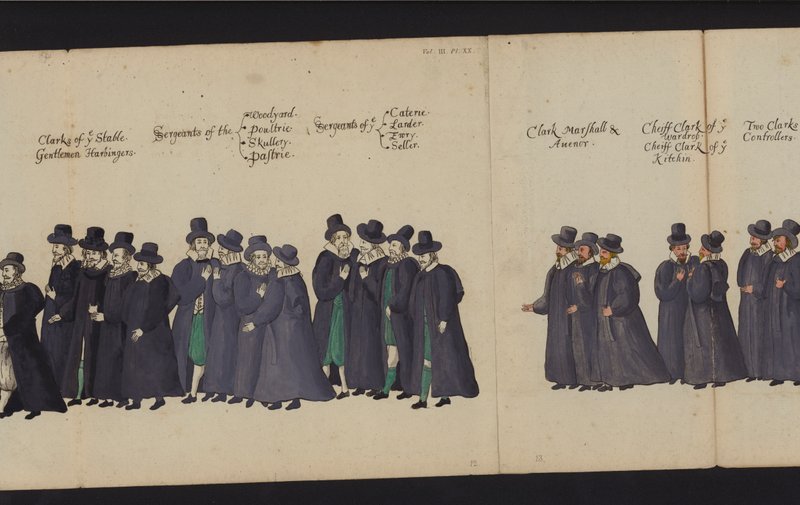 Vol. III. Pl. XX.
Clarks of yͤ Stable.
Gentlemen Harbingers.
Sergeants of the
Woodyard.
Poultrie.
Skullery.
Pastrie.
Sergeants of yͤ
Caterie.
Larder.
Ewry.
Seller.
Clark Marshall &
Avenor.
Cheiff Clark of yͤ
Wardrob.
Cheiff Clark of yͤ
Kitchin.
Two Clarks
Controllers.
12
13.